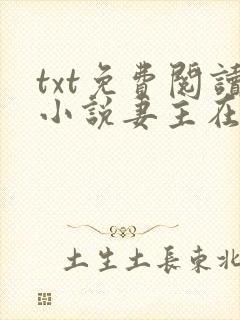 txt免費閱讀
小說妻主在
土生土長東北